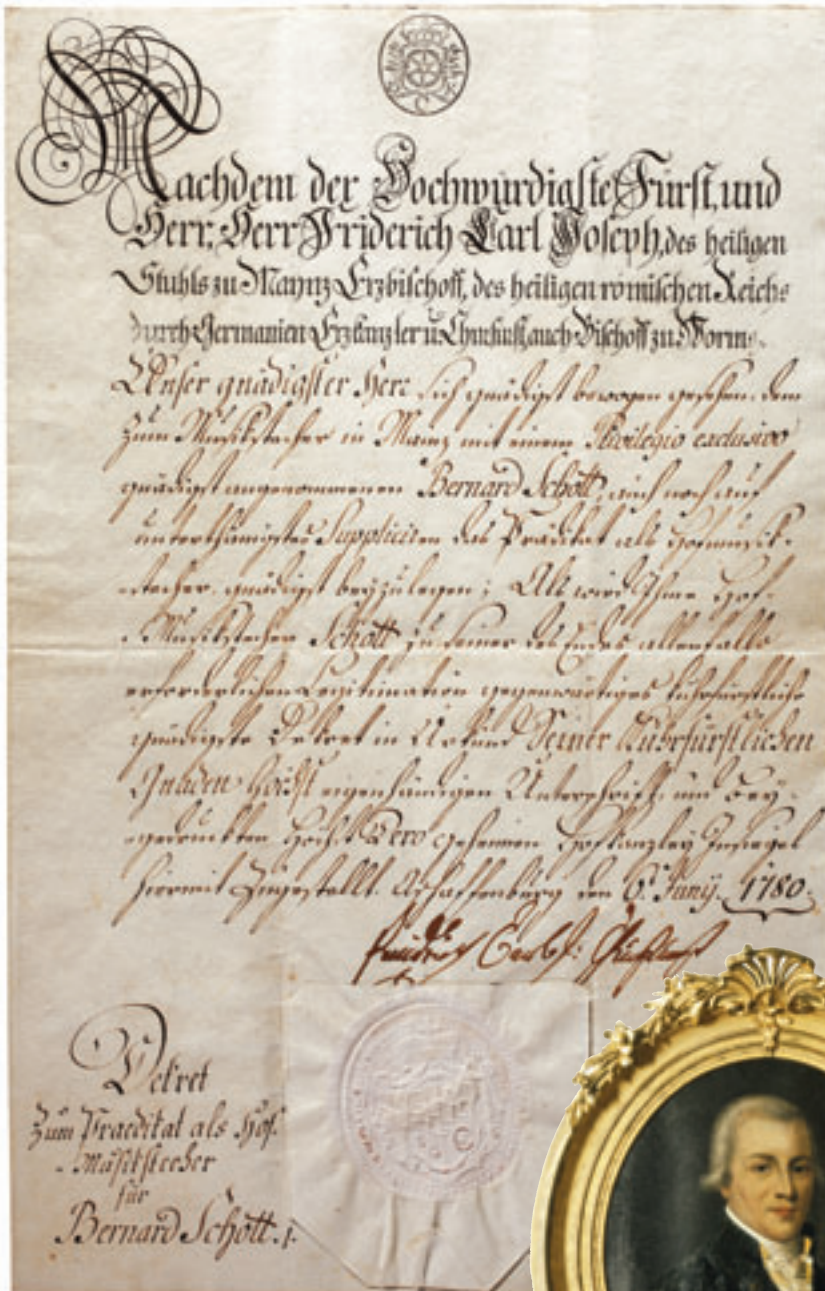 Nachdem der Hochwürdigste Fürst, und
Herr, Herr Friderich Carl Joseph, des heiligen
Stuhls zu Maynz Erzbischoff, des heiligen römischen Reichs
durch Germanien Erzkanzler u. Churfürst, auch Bischoff zu Worms.
Unser gnädigster Herr sich gnädigst bewogen gesehen, dem
zum Musikstecher in Mainz mit einem Privilegio exclusivo
gnädigst angenommenen Bernard Schott, auch noch auf
unterthänigstes Supplicien das Prädikat als Hofmusik-
stecher gnädigst beyzulegen; Als wird Ihme Hof-
Musikstecher Schott zu seiner des Endes allenfalls
erforderlichen Legitimation gegenwärtiges kuhrfürstliche
gnädigste Dekret in Urkund Seiner Kuhrfürstlichen
Gnaden Höchst eigenhändigen Unterschrift und bey-
gedruckten Höchst Dero geheimen Hofkanzley Insiegel
hiermit zugestellt. Aschaffenburg den 6t. Juny 1780.
Friedrich Carl J: Churfürst
Dekret
Zum Praedikat als Hof-
Musikstecher
für
Bernard Schott.